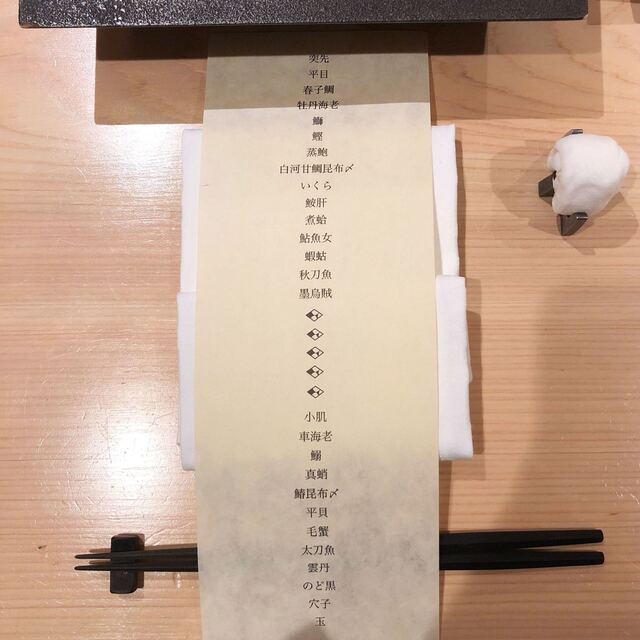 突先
平目
春子鯛
牡丹海老
鰤
鰹
蒸鮑
白河甘鯛昆布〆
いくら
鮟肝
煮蛤
鮎魚女
蝦蛄
秋刀魚
墨烏賊
小肌
車海老
鰯
真蛸
鰆昆布〆
平貝
毛蟹
太刀魚
雲丹
のど黒
穴子
玉